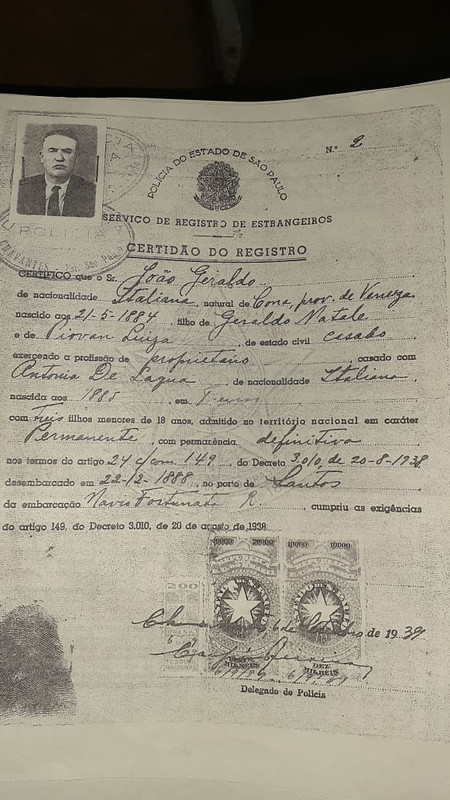 POLICIA DO ESTADO DE SÃO PAULO
N.º 2
SERVIÇO DE REGISTRO DE ESTRANGEIROS
CERTIDÃO DO REGISTRO
POLICIA
CHAVANTES São Paulo
CERTIFICO que o Sr. João Geraldo
de nacionalidade Italiana, natural de Cona, prov. de Veneza
nascido aos 21-5-1884, filho de Geraldo Natale
e de Piovan Luiza, de estado civil casado
exercendo a profissão de proprietario, casado com
Antonia De Lagua, de nacionalidade Italiana
nascida aos 1885, em
com Treis filhos menores de 18 anos, admitido no território nacional em caráter
Permanente, com permanência definitiva
nos termos do artigo 24 c/com 149, do Decreto 3.010, de 20-8-1938
desembarcado em 22-12-1888, no porto de Santos
da embarcação Navio Fortunata R., cumpriu as exigências
do artigo 149, do Decreto 3.010, de 20 de agosto de 1938.
20000 20000
10000 10000
200
MIL REIS
DEZ MIL REIS
de 1939
Delegado de Policia